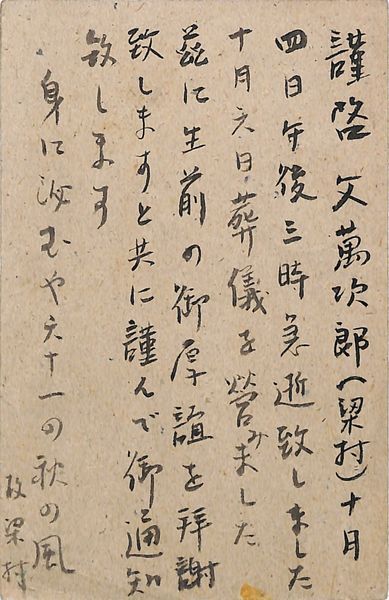 謹啓 父萬次郎（梁村）十月
四日午後三時急逝致しました
十月六日葬儀を営みました
茲に生前の御厚誼を拝謝
致しますと共に謹んで御通知
致します
身に沁むや六十一の秋の風
故梁村